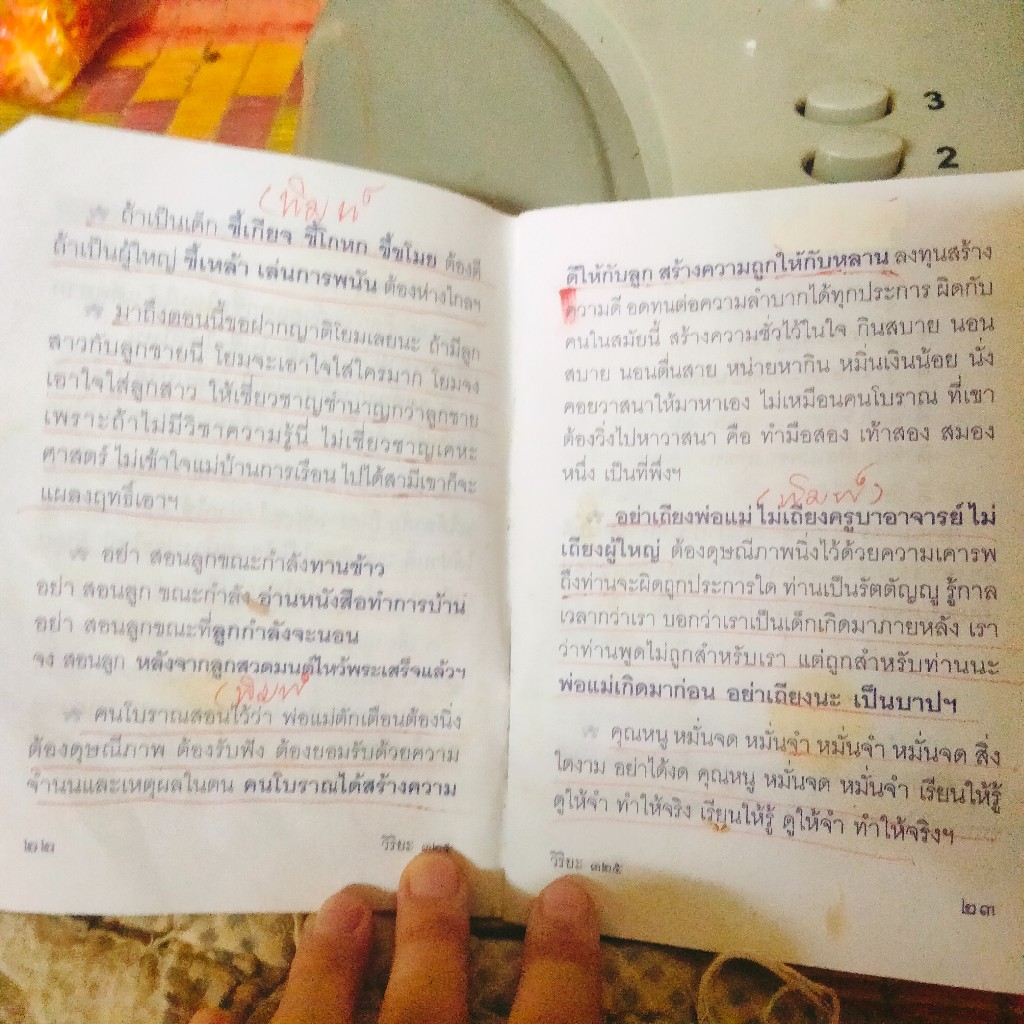 3
2
(พิมพ์
❀ ถ้าเป็นเด็ก ขี้เกียจ ขี้โกหก ขี้ขโมย ต้องตี
ถ้าเป็นผู้ใหญ่ ขี้เหล้า เล่นการพนัน ต้องห่างไกลฯ
❀ มาถึงตอนนี้ขอฝากญาติโยมเลยนะ ถ้ามีลูก
สาวกับลูกชายนี่ โยมจะเอาใจใส่ใครมาก โยมจง
เอาใจใส่ลูกสาว ให้เชี่ยวชาญชำนาญกว่าลูกชาย
เพราะถ้าไม่มีวิชาความรู้นี่ ไม่เชี่ยวชาญเคหะ
ศาสตร์ ไม่เข้าใจแม่บ้านการเรือน ไปได้สามีเขาก็จะ
แผลงฤทธิ์เอาฯ
❀ อย่า สอนลูกขณะกำลังทานข้าว
อย่า สอนลูก ขณะกำลัง อ่านหนังสือทำการบ้าน
อย่า สอนลูกขณะที่ลูกกำลังจะนอน
จง สอนลูก หลังจากลูกสวดมนต์ไหว้พระเสร็จแล้วฯ
(พิมพ์
❀ คนโบราณสอนไว้ว่า พ่อแม่ตักเตือนต้องนิ่ง
ต้องดุษณีภาพ ต้องรับฟัง ต้องยอมรับด้วยความ
จำนนและเหตุผลในตน คนโบราณได้สร้างความ
๒๒
วิริยะ ๓๒๕
ดีให้กับลูก สร้างความถูกให้กับหลาน ลงทุนสร้าง
ความดี อดทนต่อความลำบากได้ทุกประการ ผิดกับ
คนในสมัยนี้ สร้างความชั่วไว้ในใจ กินสบาย นอน
สบาย นอนตื่นสาย หน่ายหากิน หมิ่นเงินน้อย นั่ง
คอยวาสนาให้มาหาเอง ไม่เหมือนคนโบราณ ที่เขา
ต้องวิ่งไปหาวาสนา คือ ทำมือสอง เท้าสอง สมอง
หนึ่ง เป็นที่พึ่งฯ
(พิมพ์)
❀ อย่าเถียงพ่อแม่ ไม่เถียงครูบาอาจารย์ ไม่
เถียงผู้ใหญ่ ต้องดุษณีภาพนิ่งไว้ด้วยความเคารพ
ถึงท่านจะผิดถูกประการใด ท่านเป็นรัตตัญญู รู้กาล
เวลากว่าเรา บอกว่าเราเป็นเด็กเกิดมาภายหลัง เรา
ว่าท่านพูดไม่ถูกสำหรับเรา แต่ถูกสำหรับท่านนะ
พ่อแม่เกิดมาก่อน อย่าเถียงนะ เป็นบาปฯ
❀ คุณหนู หมั่นจด หมั่นจำ หมั่นจำ หมั่นจด สิ่ง
ใดงาม อย่าได้งด คุณหนู หมั่นจด หมั่นจำ เรียนให้รู้
ดูให้จำ ทำให้จริง เรียนให้รู้ ดูให้จำ ทำให้จริงฯ
วิริยะ ๓๒๕
๒๓